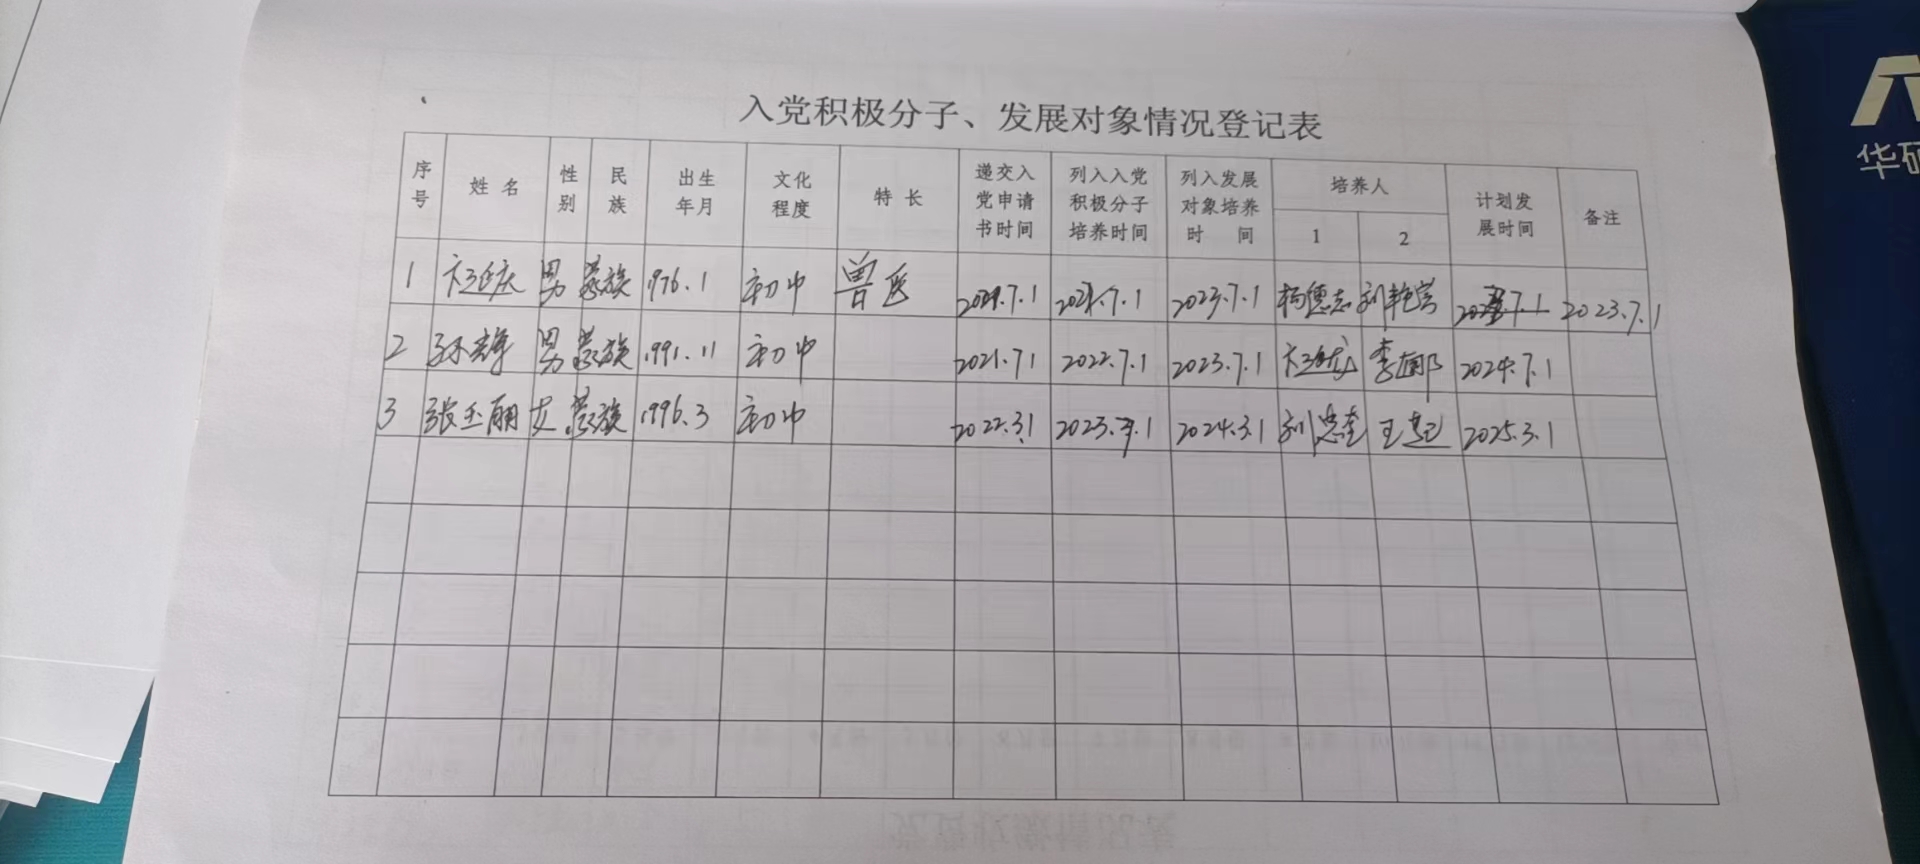 入党积极分子、发展对象情况登记表
序号 姓名 性别 民族 出生年月 文化程度 特长 递交入党申请书时间 列入入党积极分子培养时间 列入发展对象培养时间 培养人 1 2 计划发展时间 备注
1 男 蒙族 1976.1 初中 兽医 7.1 7.1 2023.7.1 杨德志 刘艳宫 7.1 2023.7.1
2 孙辉 男 蒙族 1991.11 初中 2021.7.1 2022.7.1 2023.7.1 李 2024.7.1
3 张玉丽 女 蒙族 1996.3 初中 2022.3.1 2023. .1 2024.3.1 刘忠奎 王 2025.3.1
华硕